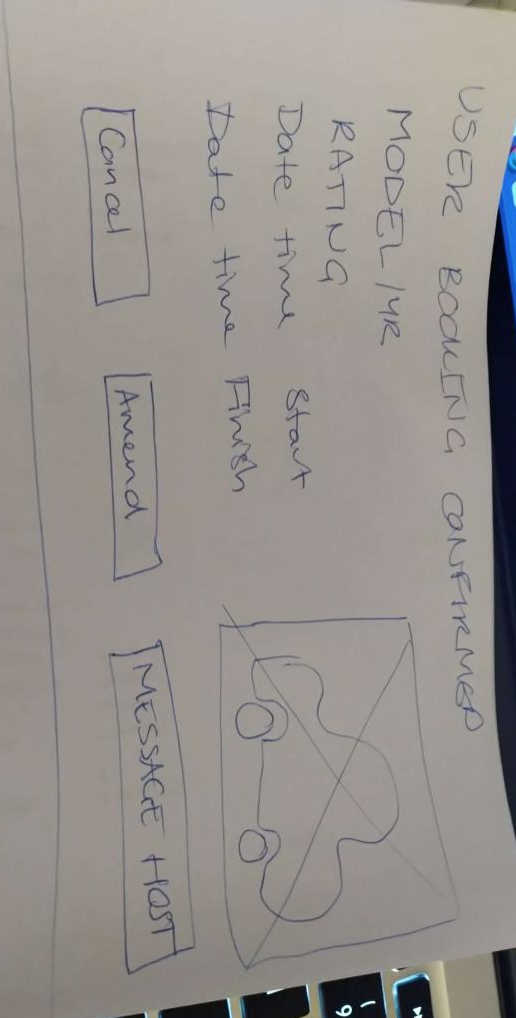 USER BOOKING CONFIRMED
MODEL/YR
RATING
Date time Start
Date time Finish
Cancel
Amend
MESSAGE HOST